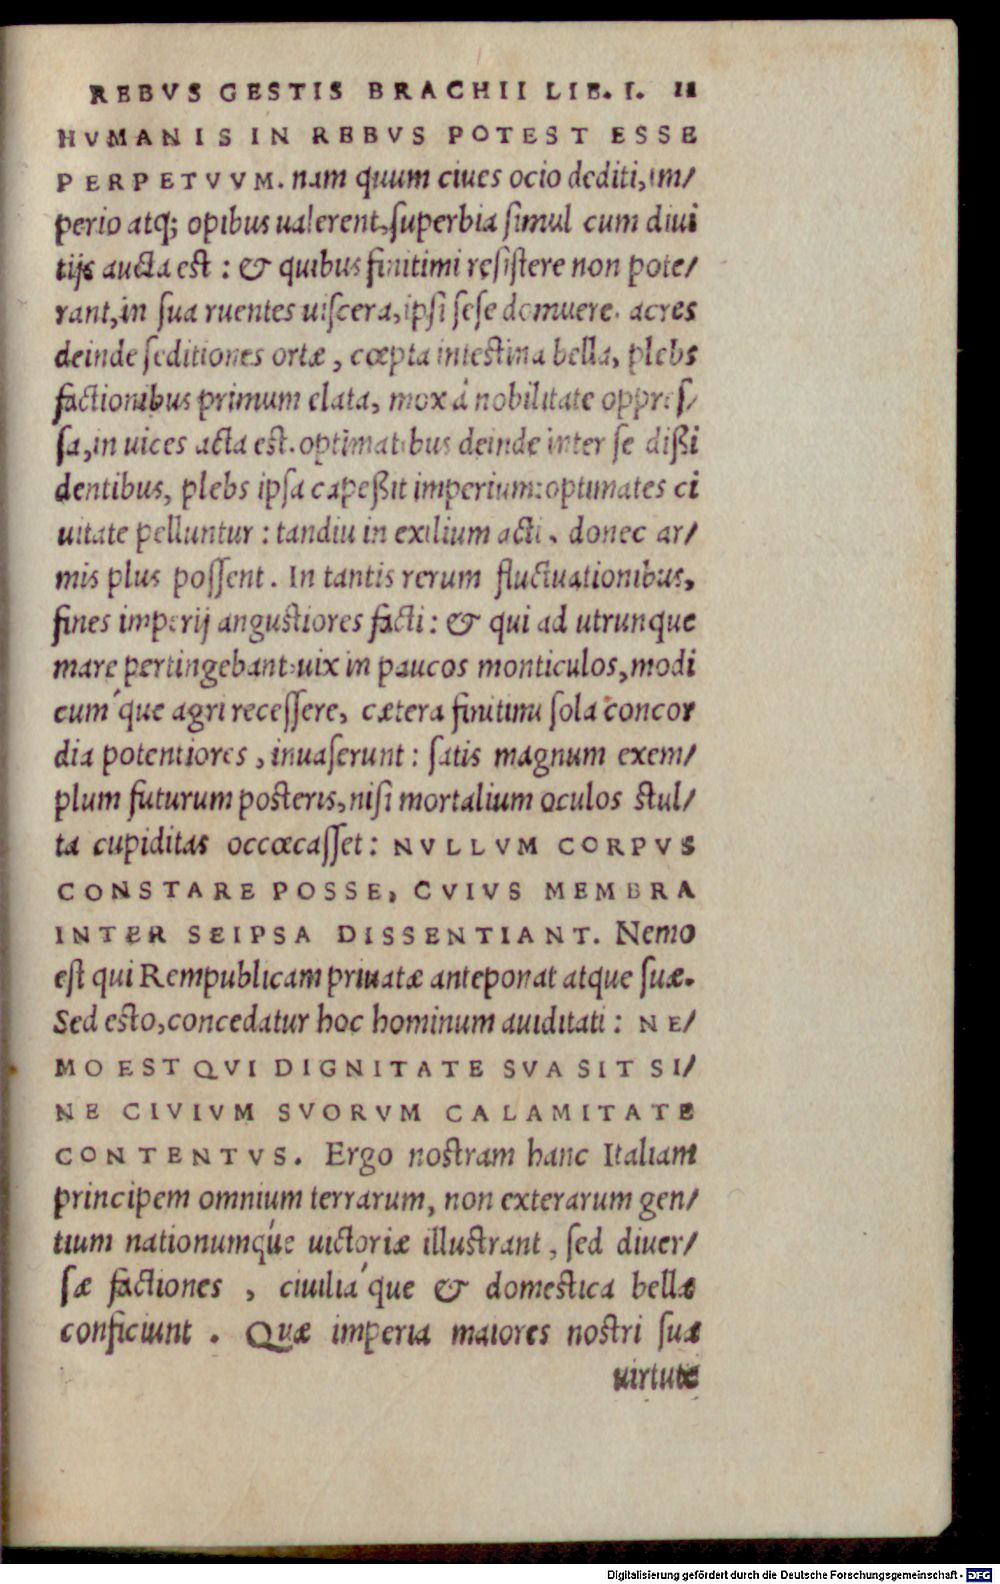 REBVS GESTIS BRACHII LIB. I. 11
HVMANIS IN REBVS POTEST ESSE
PERPETVVM. nam quum ciues ocio dediti, im/
perio atq; opibus ualerent, superbia simul cum diui
tijs aucta est : & quibus finitimi resistere non pote/
rant, in sua ruentes uiscera, ipsi sese domuere. acres
deinde seditiones ortæ, cœpta intestina bella, plebs
factionibus primum elata, mox à nobilitate oppres/
sa, in uices acta est. optimatibus deinde inter se dißi
dentibus, plebs ipsa capeßit imperium: optimates ci
uitate pelluntur : tandiu in exilium acti, donec ar/
mis plus possent. In tantis rerum fluctuationibus,
fines imperij angustiores facti : & qui ad utrunque
mare pertingebant, uix in paucos monticulos, modi
cum´que agri recessere, cætera finitimi sola concor
dia potentiores, inuaserunt : satis magnum exem/
plum futurum posteris, nisi mortalium oculos stul/
ta cupiditas occœcasset : NVLLVM CORPVS
CONSTARE POSSE, CVIVS MEMBRA
INTER SEIPSA DISSENTIANT. Nemo
est qui Rempublicam priuatæ anteponat atque suæ.
Sed esto, concedatur hoc hominum auiditati : NE/
MO EST QVI DIGNITATE SVA SIT SI/
NE CIVIVM SVORVM CALAMITATE
CONTENTVS. Ergo nostram hanc Italiam
principem omnium terrarum, non exterarum gen/
tium nationumq́ue uictoriæ illustrant, sed diuer/
sæ factiones, ciuilia´que & domestica bella
conficiunt. Quæ imperia maiores nostri sua
uirtute
Digitalisierung gefördert durch die Deutsche Forschungsgemeinschaft - DFG